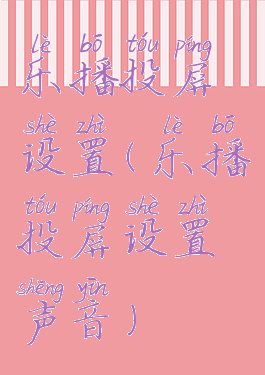 lè bō tóu píng
乐播投屏
shè zhì lè bō
设置(乐播
tóu píng shè zhì
投屏设置
shēng yīn
声音)